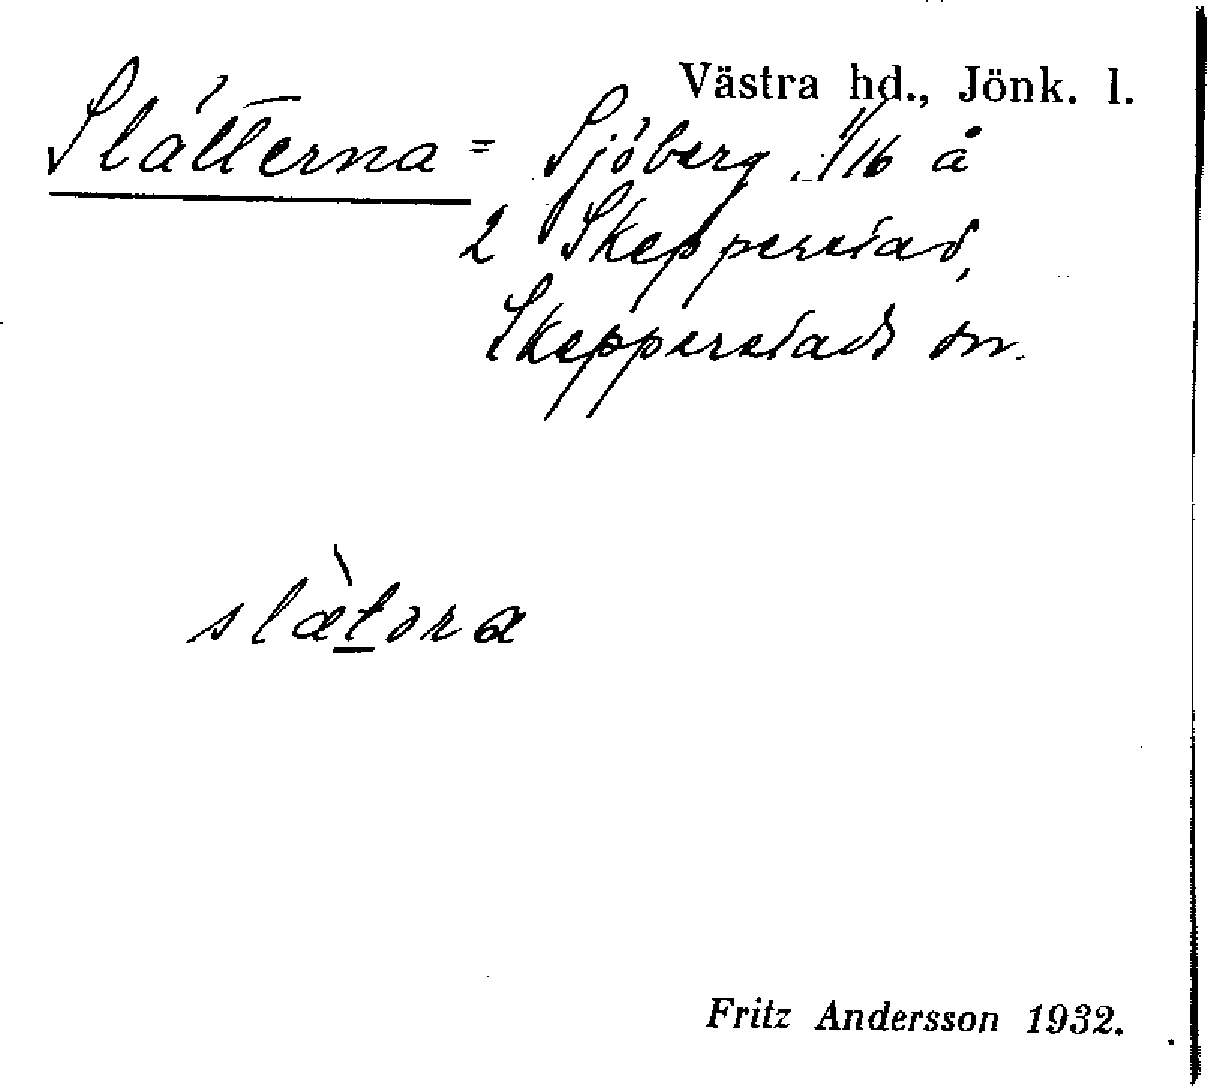 Västra hd., Jönk. l.
Slätterna = Sjöberg 1/16 å
2 Skepperstad,
Skepperstads sn.
slæ̀təra
Fritz Andersson 1932.